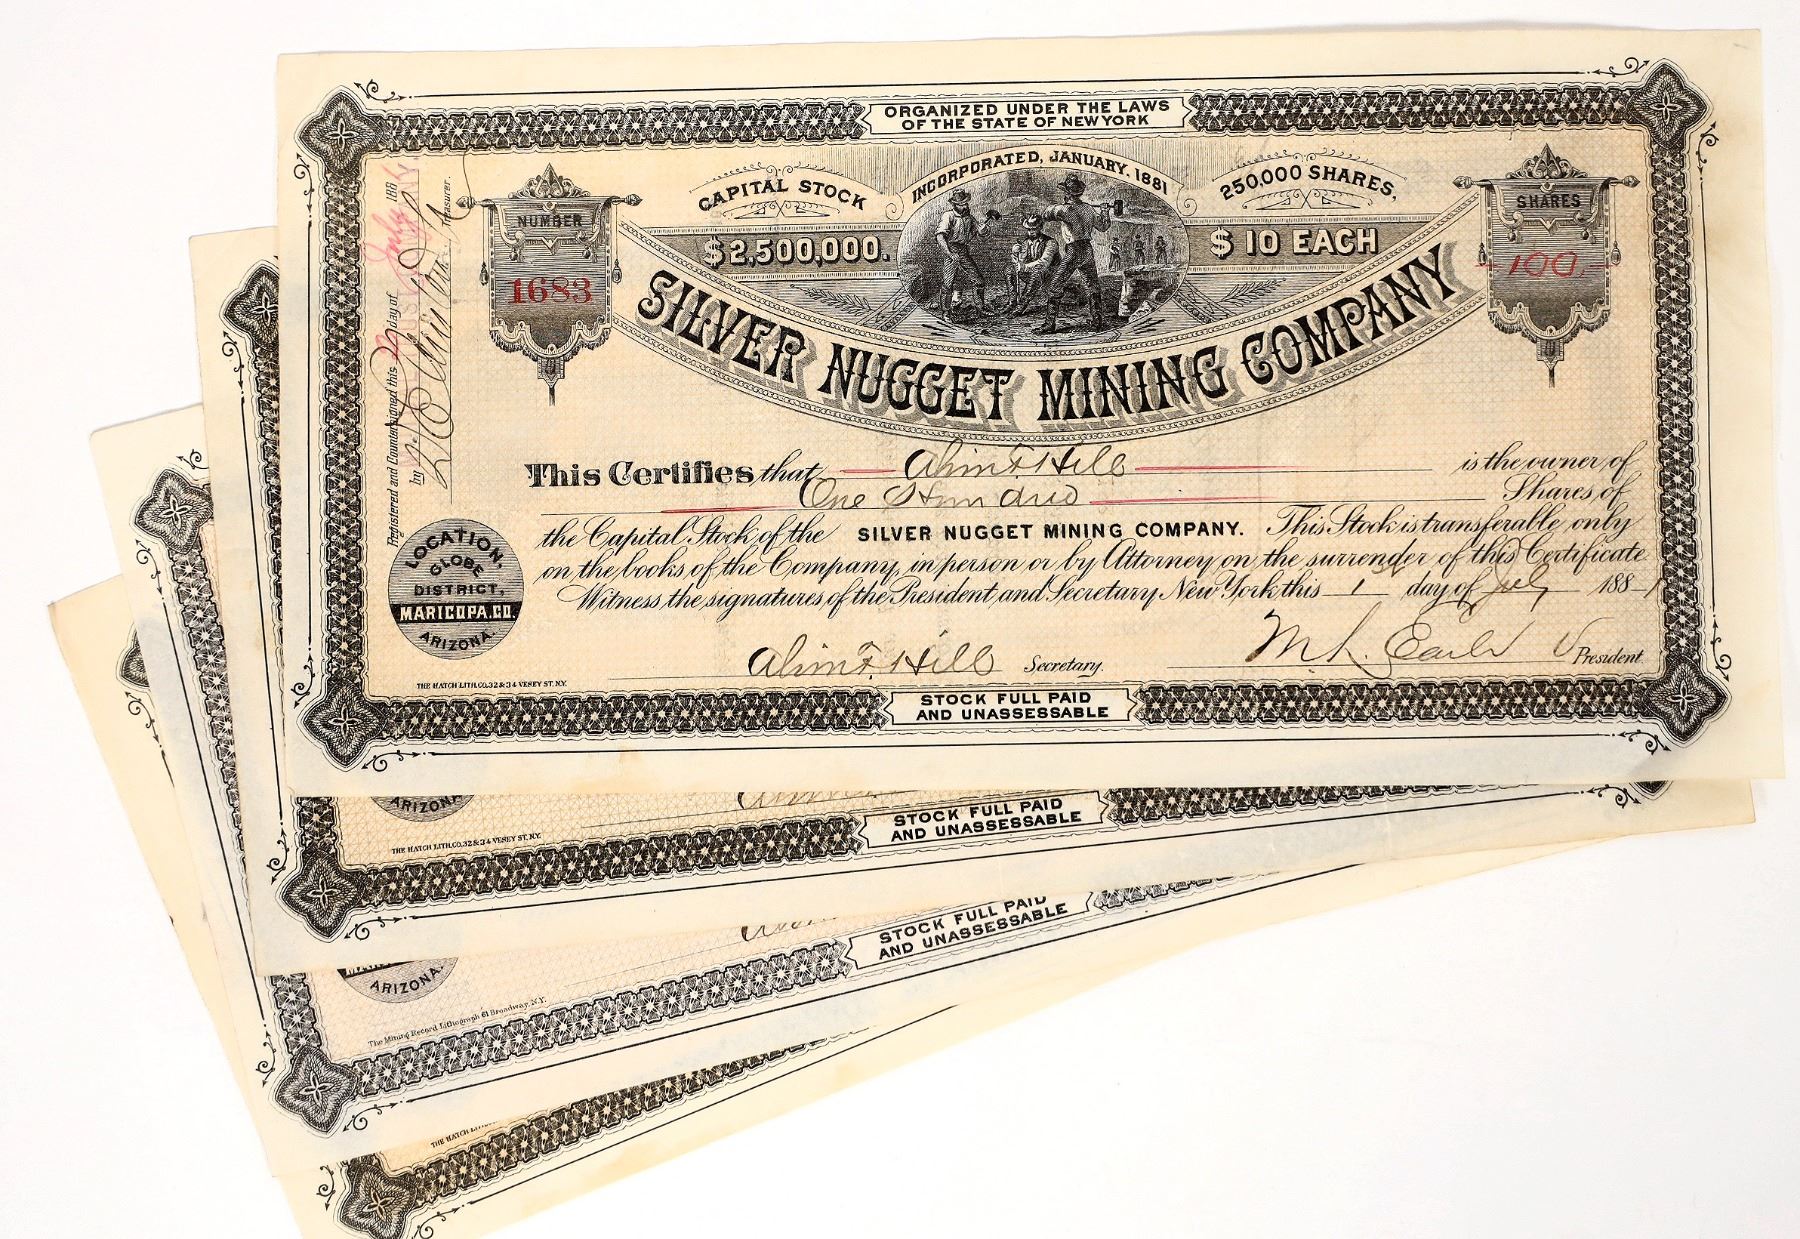 ORGANIZED UNDER THE LAWS
OF THE STATE OF NEW YORK
INCORPORATED, JANUARY. 1881
CAPITAL STOCK
$2,500,000.
250,000 SHARES,
$10 EACH
NUMBER
1683
SHARES
100.
SILVER NUGGET MINING COMPANY
Registered and Countersigned this day of July 188
by Treasurer.
This Certifies that Hill is the owner of
One Hundred Shares of
the Capital Stock of the SILVER NUGGET MINING COMPANY. This Stock is transferable only
on the books of the Company, in person or by Attorney on the surrender of this Certificate
Witness the signatures of the President and Secretary New York this 1st day of July 1881
LOCATION,
GLOBE
DISTRICT,
MARICOPA.CO.
ARIZONA.
Hill Secretary.
President
THE HATCH LITH.CO.32&34 VESEY ST. N.Y.
STOCK FULL PAID
AND UNASSESSABLE
ARIZONA
THE HATCH LITH.CO.32&34 VESEY ST. N.Y.
STOCK FULL PAID
AND UNASSESSABLE
ARIZONA.
The Mining Record Lithograph 61 Broadway. N.Y.
STOCK FULL PAID
AND UNASSESSABLE
THE HATCH